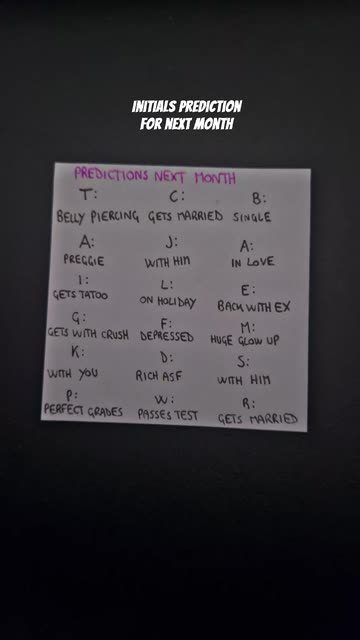 INITIALS PREDICTION
FOR NEXT MONTH
PREDICTIONS NEXT MONTH
T: C: B:
BELLY PIERCING GETS MARRIED SINGLE
A: J: A:
PREGGIE WITH HIM IN LOVE
I: L: E:
GETS TATOO ON HOLIDAY BACK WITH EX
G: F: M:
GETS WITH CRUSH DEPRESSED HUGE GLOW UP
K: D: S:
WITH YOU RICH ASF WITH HIM
P: W: R:
PERFECT GRADES PASSES TEST GETS MARRIED